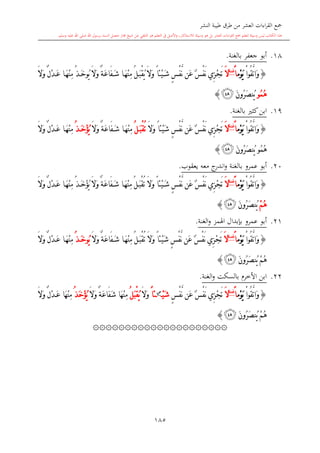 جمع القراءات العشر من طرق طيبة النشر
١٨. أبو جعفر بالغنة.
﴿ وَاتَّقُوا۟ يَوْمًا لَّا تَجْزِي نَفْسٌ عَن نَّفْسٍ شَيْـًٔا وَلَا يُقْبَلُ مِنْهَا شَفَاعَةٌ وَلَا يُوخَذُ مِنْهَا عَدْلٌ وَلَا
هُمُو يُنصَرُونَ ﴿٤٨﴾ ﴾
١٩. ابن كثير بالغنة.
﴿ وَاتَّقُوا۟ يَوْمًا لَّا تَجْزِي نَفْسٌ عَن نَّفْسٍ شَيْـًٔا وَلَا تُقْبَلُ مِنْهَا شَفَاعَةٌ وَلَا يُؤْخَذُ مِنْهَا عَدْلٌ وَلَا
هُمُو يُنصَرُونَ ﴿٤٨﴾ ﴾
٢٠. أبو عمرو بالغنة واندرج معه يعقوب.
﴿ وَاتَّقُوا۟ يَوْمًا لَّا تَجْزِي نَفْسٌ عَن نَّفْسٍ شَيْـًٔا وَلَا تُقْبَلُ مِنْهَا شَفَاعَةٌ وَلَا يُؤْخَذُ مِنْهَا عَدْلٌ وَلَا
هُمْ يُنصَرُونَ ﴿٤٨﴾ ﴾
٢١. أبو عمرو بإبدال الهمز والغنة.
﴿ وَاتَّقُوا۟ يَوْمًا لَّا تَجْزِي نَفْسٌ عَن نَّفْسٍ شَيْـًٔا وَلَا تُقْبَلُ مِنْهَا شَفَاعَةٌ وَلَا يُوخَذُ مِنْهَا عَدْلٌ وَلَا
هُمْ يُنصَرُونَ ﴿٤٨﴾ ﴾
٢٢. ابن الأخرم بالسكت والغنة.
﴿ وَاتَّقُوا۟ يَوْمًا لَّا تَجْزِي نَفْسٌ عَن نَّفْسٍ شَيْـًٔا وَلَا يُقْبَلُ مِنْهَا شَفَاعَةٌ وَلَا يُؤْخَذُ مِنْهَا عَدْلٌ وَلَا
هُمْ يُنصَرُونَ ﴿٤٨﴾ ﴾
١٨٥